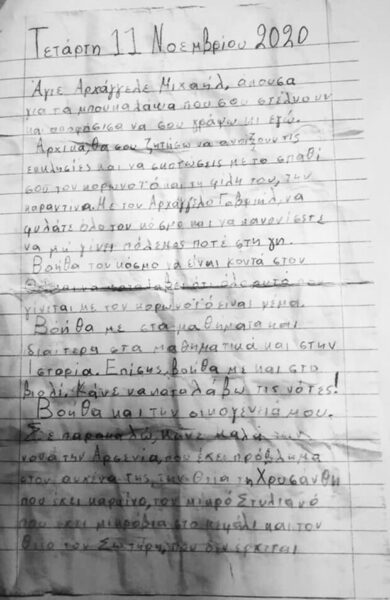 Τετάρτη 11 Νοεμβρίου 2020
Άγιε Αρχάγγελε Μιχαήλ, άκουσα
για τα μπουκαλάκια που σου στέλνουν
και αποφάσισα να σου γράψω κι εγώ.
Αρχικά, θα σου ζητήσω να ανοίξουν τις
εκκλησίες και να σκοτώσεις με το σπαθί
σου τον κορωνοϊό και τη φίλη του, την
καραντίνα. Με τον Αρχάγγελο Γαβριήλ, να
φυλάτε όλο τον κόσμο και να κανονίσετε
να μη γίνει πόλεμος ποτέ στη γη.
Βοήθα τον κόσμο να είναι κοντά στον
να καταλάβει ότι όλο αυτό που
γίνεται με τον κορωνοϊό είναι ψέμα.
Βοήθα με στα μαθήματα και
ιδιαίτερα στα μαθηματικά και στην
Ιστορία. Επίσης, βοήθα με και στο
βιολί. Κάνε να καταλάβω τις νότες!
Βοήθα και την οικογένειά μου.
Σε παρακαλώ, κάνε καλά την
νονά την Αρσενία, που έχει πρόβλημα
στον αυχένα της, την θεία τη Χρυσάνθη
που έχει καρκίνο, τον μικρό Στυλιανό
που έχει μικρόβια στο κεφάλι και τον
θείο τον Σωτήρη, που δεν έρχεται